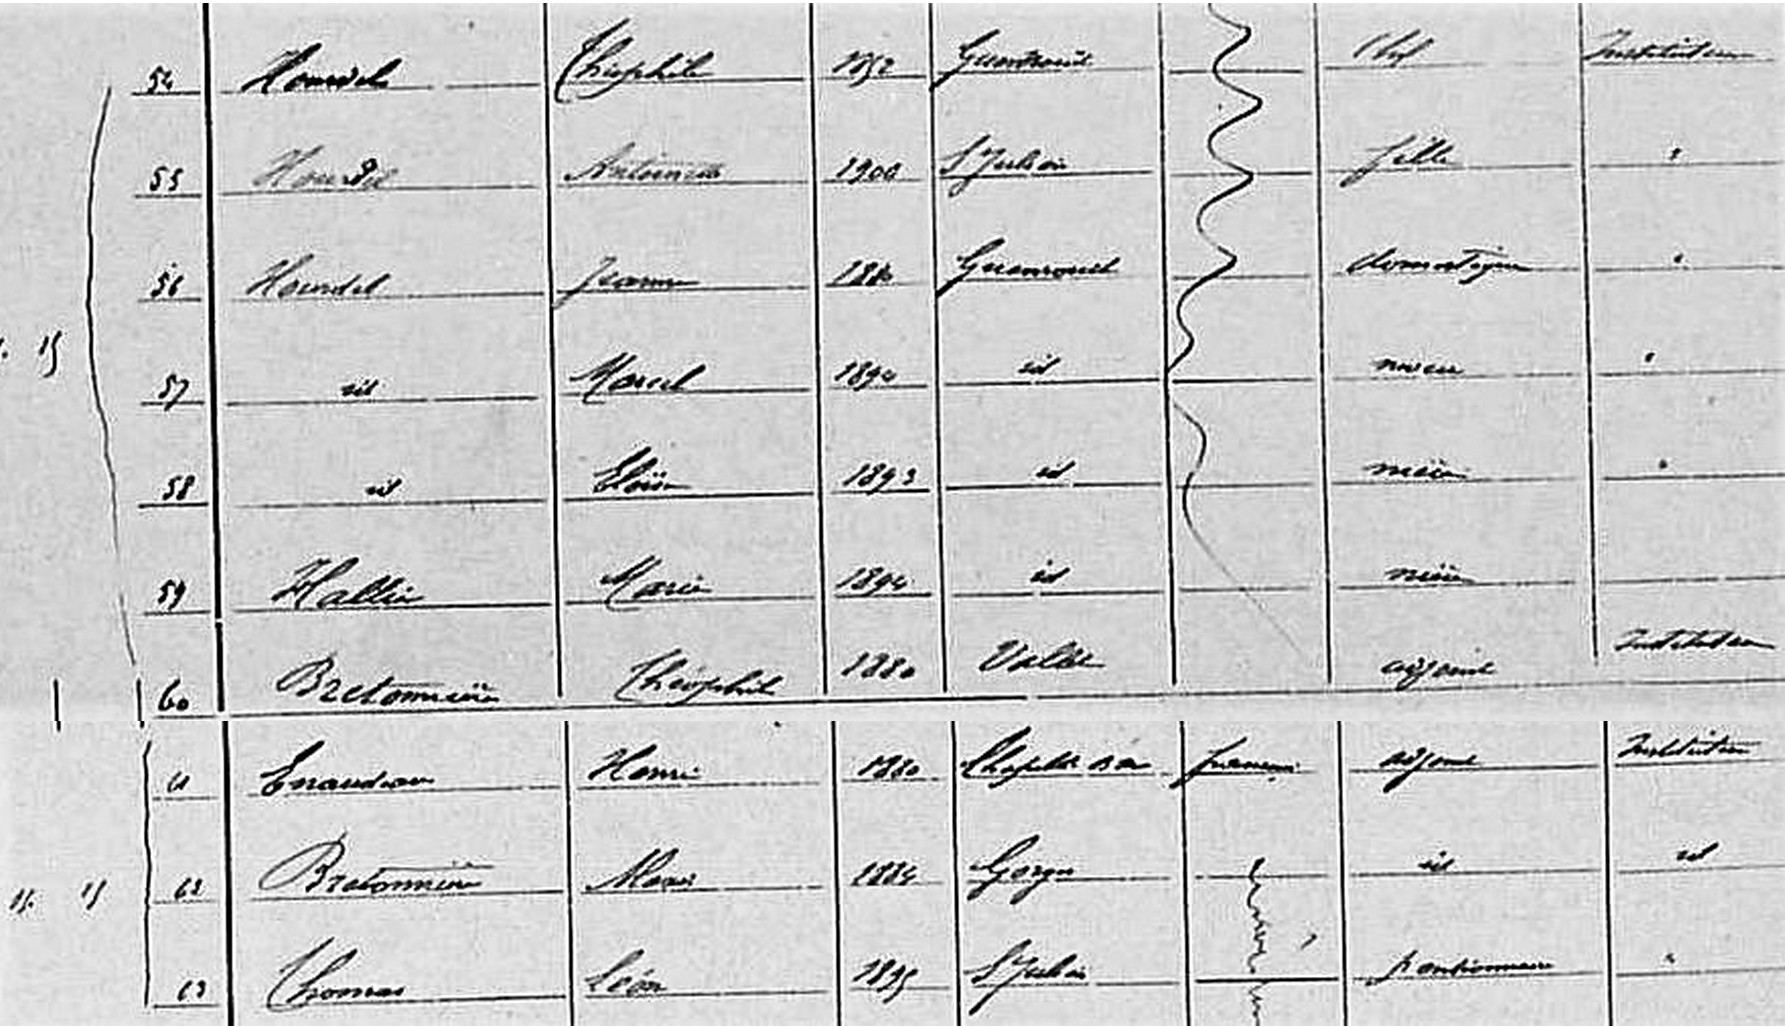 54 Hourdel Théophile 1852 Guenrouët Chef Instituteur
55 Hourdel Antoinette 1900 St Julien fille "
56 Hourdel Jeanne 1880 Guenrouet domestique "
15 57 id Marcel 1890 id neveu "
58 id Eloïse 1893 id nièce "
59 Hallier Marie 1894 id nièce
60 Bretonnière Théophile 1880 Vallet adjoint Instituteur
61 Enaudeau Henri 1880 Chapelle française adjoint Instituteur
15 62 Bretonnière Marie 1884 Gorges id id
63 Thomas Léon 1895 St Julien pensionnaire "